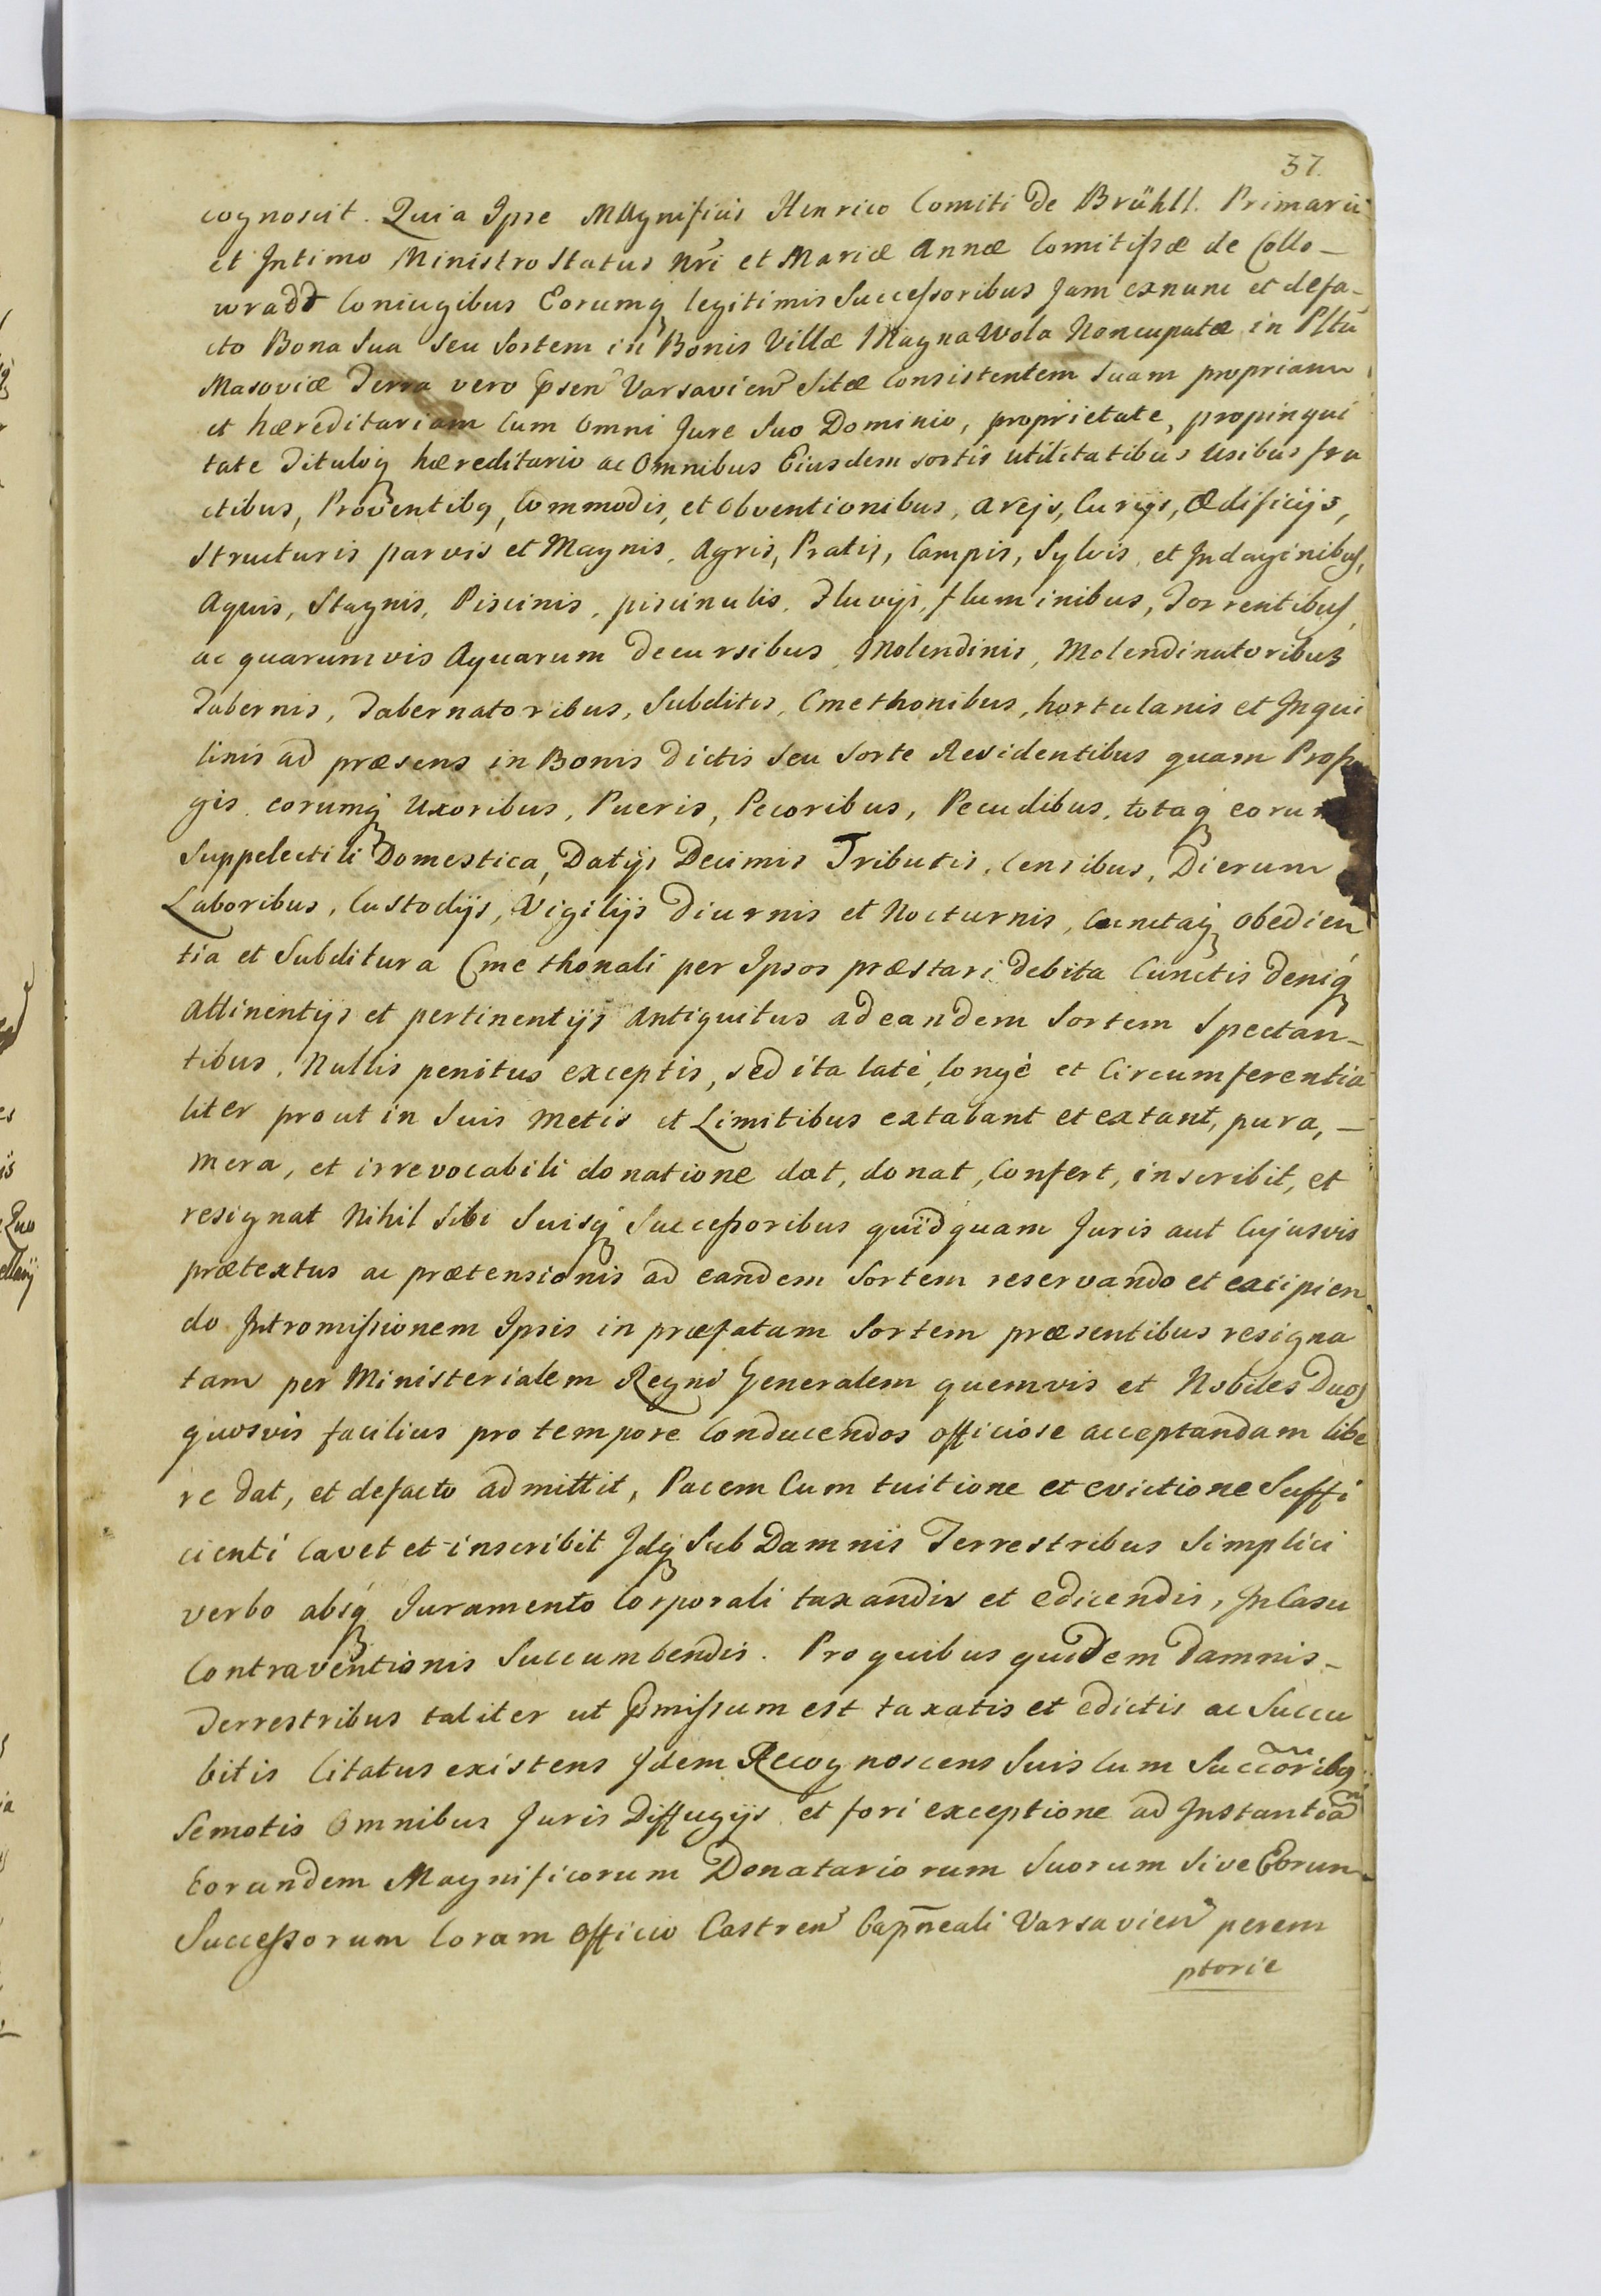 37.
cognoscit. Quia Ipse Magnificis Henrico Comiti De Brühll. Primario
et Intimo Ministro Status Nri et Mariæ Annæ Comitißæ de Collo-
wradt Coniugibus Eorumq legitimis Succeßoribus Jam exnunc et defa-
cto Bona Sua Seu Sortem in Bonis Villæ Magna Wola Noncupatæ in Pltu
Masoviæ Terra vero Psen Varsavien Sitæ Consistentem Suam propriam
et hæreditariam Cum Omni Jure Suo Dominio, proprietate, propinqui
tate Tituloq hæreditario ac Omnibus Eiusdem sortis utilitatibus Usibus fru
ctibus, Proventibq, Commodis, et Obventionibus, Arejs, Curijs, Ædificijs,
Structuris parvis et Magnis, Agris, Pratis, Campis, Sylvis, et Indaginibus,
Aquis, Stagnis, Piscinis, piscinulis, Fluvijs, fluminibus, Torrentibus,
ac quarumvis Aquarum Decursibus, Molendinis, Molendinatoribus
Tabernis, Tabernatoribus, Subditis, Cmethonibus, hortulanis et Inqui
linis ad præsens in Bonis Dictis Seu Sorte Residentibus quam
gis eorumq Uxoribus, Pueris, Pecoribus, Pecudibus, totaq eorum
Suppelectili Domestica, Datijs Decimis Tributis, Censibus, Dierum
Laboribus, Custodijs, Vigilijs Diurnis et Nocturnis, Cunctaq obedien
tia et Subditura Cmethonali per Ipsos præstari Debita Cunctis Deniq
Attinentijs et pertinentijs Antiquitus ad eandem Sortem Spectan-
tibus, Nullis penitus exceptis, sed ita latè, longè et Circumferentia
liter prout in Suis Metis et Limitibus extabant et extant, pura, -
Mera, et irrevocabili donatione dat, donat, Confert, inscribit, et
resignat Nihil Sibi Suisq Succeßoribus quidquam Juris aut Cujusvis
prætextus ac prætensionis ad eandem Sortem reservando et excipien
do Intromißionem Ipsis in præfatam Sortem præsentibus resigna
tam per Ministerialem Regni Generalem quemvis et Nobiles Duos
quosvis facilius pro tempore Conducendos officiose acceptandam libe
re Dat, et defacto admittit, Pacem Cum tuitione et evictione Suffi
cienti Cavet et inscribit Idq Sub Damnis Terrestribus Simplici
verbo absq Juramento Corporali taxandis et edicendis, In Casu
Contraventionis Succumbendis. Pro quibus quidem Damnis-
Terrestribus taliter ut Pmißum est taxatis et edictis ac Succu
bitis Citatus existens Idem Recognoscens Suis Cum Succoribq
Semotis Omnibus Juris Diffugijs et fori exceptione ad Instantiam
Eorundem Magnificorum Donatariorum Suorum Sive Eorum
Succeßorum Coram Officio Castren Capneali Varsavien perem
ptorie